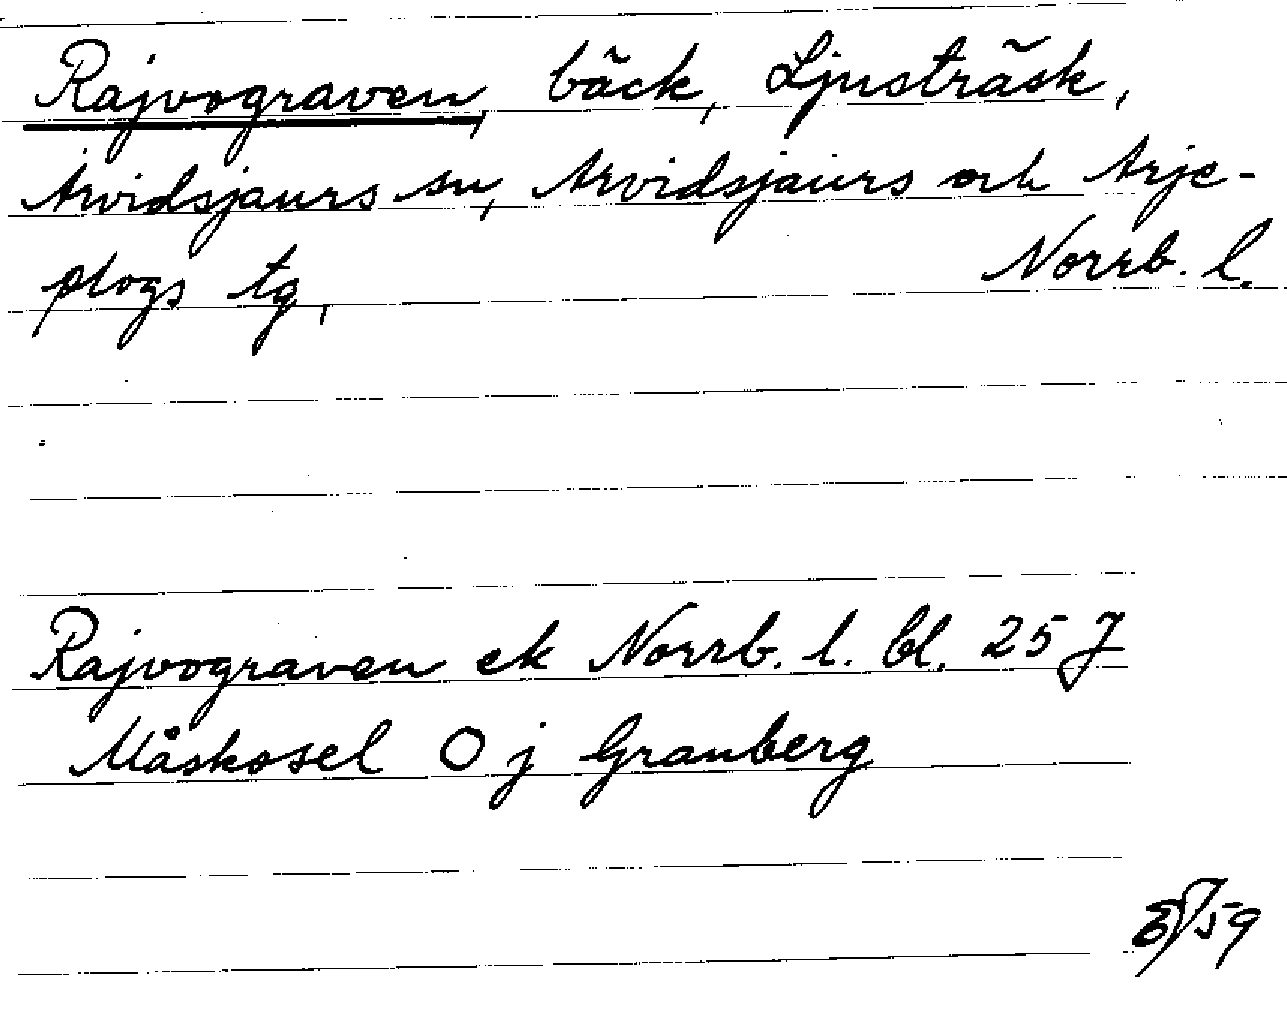 Rajvograven, bäck, Ljusträsk,
Arvidsjaurs sn, Arvidsjaurs och Arje-
plogs tg, Norrb. l.
Rajvograven ek Norrb. l. bl. 25 J
Måskosel O j Granberg
59